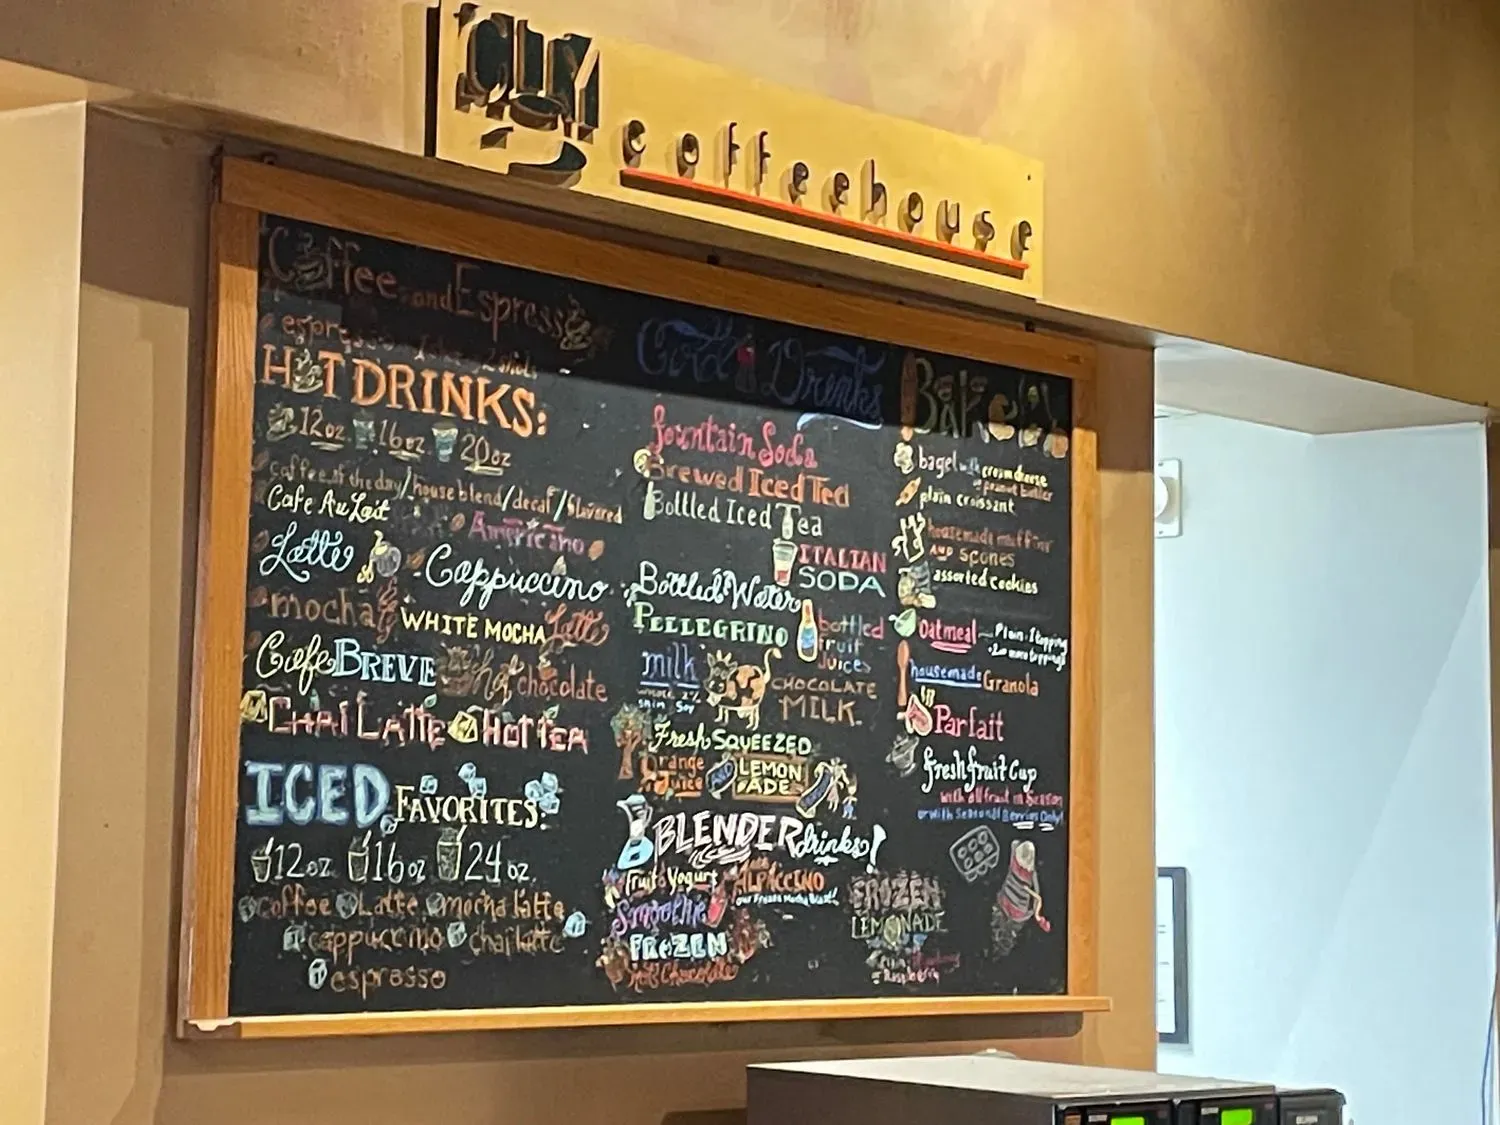 coffeehouse
Coffee and Espresso
espresso
2 shots
HOT DRINKS:
12oz. 16oz 20oz
coffee of the day/house blend/decaf/flavored
Cafe Au Lait
Americano
Latte Cappuccino
mocha WHITE MOCHA Latte
Cafe BREVE hot chocolate
CHAI LATTE HOT TEA
ICED FAVORITES:
12oz 16oz 24oz.
coffee Latte mocha latte
cappuccino chai latte
espresso
Cold Drinks
fountain Soda
Brewed Iced Tea
Bottled Iced Tea
ITALIAN
SODA
Bottled Water
PELLEGRINO
bottled
fruit
Juices
milk
whole 2%
skim Soy
CHOCOLATE
MILK.
Fresh SQUEEZED
Orange
Juice
AND
LEMON
ADE
BLENDER drinks!
Fruit & Yogurt
Smoothie
ALPACCINO
our Frozen Mocha Blast!
FROZEN
Hot Chocolate
FROZEN
LEMONADE
Raspberry
bagel with cream cheese
or peanut butter
plain croissant
housemade muffins
AND SCONES
assorted cookies
Oatmeal
Plain, 1 topping
housemade Granola
Parfait
fresh fruit Cup
with all fruit in Season
or with Seasonal Berries Only!